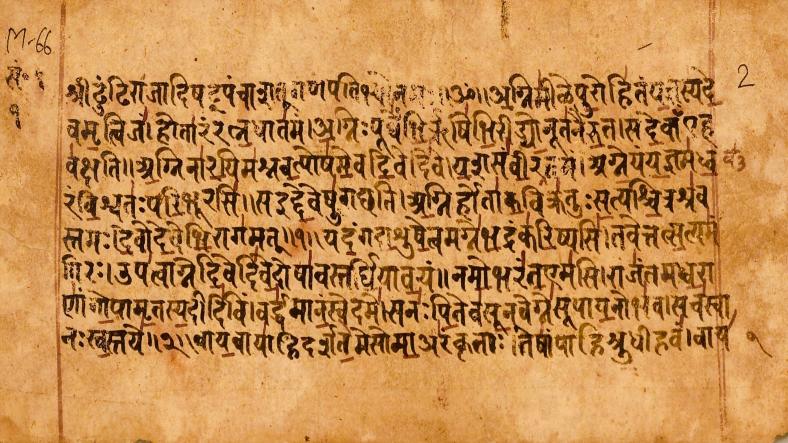 M-66
2
श्रीढुंढिराजादिषट्पंचाशद्गणपतिभ्योनमः॥ॐ॥अग्निमीळेपुरोहितंयज्ञस्यदे
वमृत्विजं।होतारंरत्नधातमं।अग्निःपूर्वेभिर्ऋषिभिरीड्योनूतनैरुत।सदेवाँएह
वक्षति॥अग्निनारयिमश्नवत्पोषमेवदिवेदिवे।यशसंवीरवत्तमं।अग्नेयंयज्ञमध्व
रंविश्वतःपरिभूरसि॥सइद्देवेषुगच्छति।अग्निर्होताकविक्रतुःसत्यश्चित्रश्रव
स्तमः।देवोदेवेभिरागमत्॥१॥यदंगदाशुषेत्वमग्नेभद्रंकरिष्यसि।तवेत्तत्सत्यमं
गिरः।उपत्वाग्नेदिवेदिवेदोषावस्तर्द्धियावयं॥नमोभरंतएमसि।राजंतमध्वरा
णांगोपामृतस्यदीदिविं।वर्द्धमानंस्वेदमे।सनःपितेवसूनवेग्नेसूपायनोभव।सचस्वा
नःस्वस्तये॥२॥वायवायाहिदर्शतेमेसोमाअरंकृताः।तेषांपाहिश्रुधीहवं।वाय